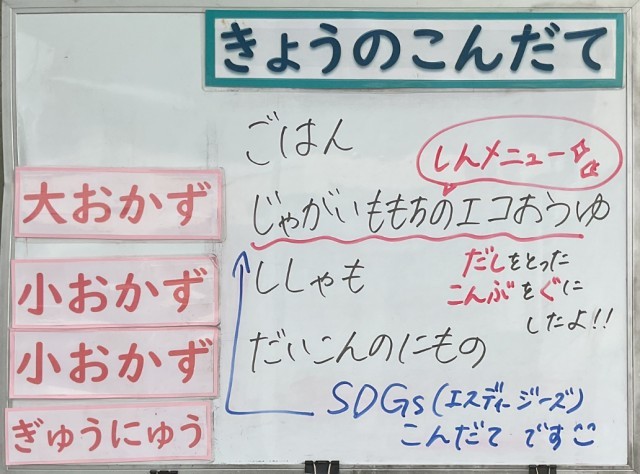 きょうのこんだて
ごはん
しんメニュー
大おかず
じゃがいももちのエコおつゆ
小おかず
ししゃも
だしをとった
こんぶをぐに
したよ!!
小おかず
だいこんのにもの
ぎゅうにゅう
SDGs(エスディージーズ)
こんだて です